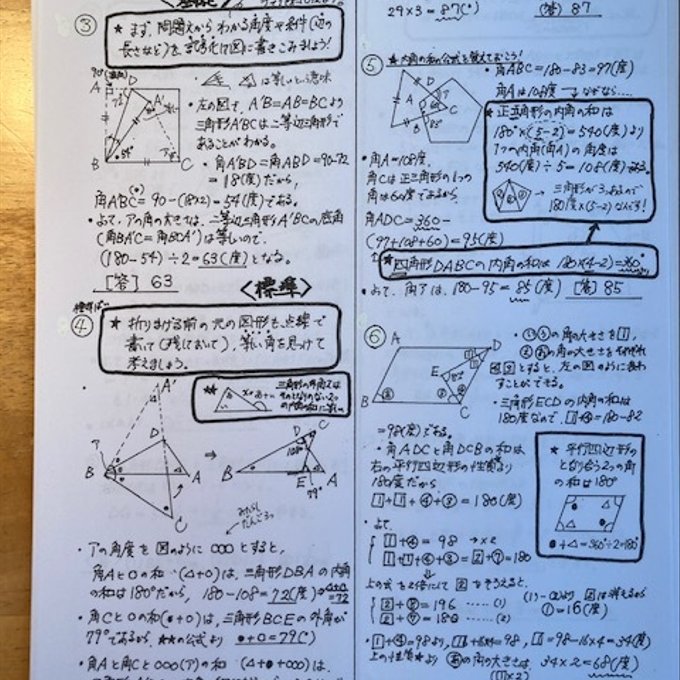 ③
★ まず、問題文からわかる角度や条件(辺の
長さなど)を、式だけでなく図に書きこみましょう!
は等しいと意味
・左の図で、A'B=AB=BCより
三角形A'BCは二等辺三角形で
あることがわかる。
・角A'BD=角ABD=90-72
=18(度)だから、
角A'BC=90-(18×2)=54(度)である。
・よって、アの角の大きさは、二等辺三角形A'BCの底角
(角BA'C=角BCA')は等しいので、
(180-54)÷2=63(度)となる。
[答] 63
〈標準〉
④
★ 折りまげる前の元の図形も点線で
書いて(残しておいて)、等しい角を見つけて
考えましょう。
・アの角度を図のように○○○とすると、
角Aと○の和(△+○)は、三角形DBAの内角
の和は180°だから、180-108=72(度)
・角Cと○の和(●+○)は、三角形BCEの外角が
77°であるから、★★の公式より ●+○=77(°)
・角Aと角Cと○○○(ア)の和(△+●+○○○)は、
29×3=87(°)
[答] 87
⑤
★内角の和の公式を覚えておこう!
・角ABC=180-83=97(度)
角Aは108度 →なぜなら...
★ 正五角形の内角の和は
180°×(5-2)=540(度)より
1つの内角(角A)の角度は
540(度)÷5=108(度)である。
→ 三角形が3つあるので
180度×(5-2)なんです!
・角A=108度、
角Cは正三角形の1つの
角は60度であるから、
角ADC=360-
(97+108+60)=95(度)
★四角形DABCの内角の和は 180×(4-2)=360°
・よって、角アは、180-95=85(度) [答] 85
⑥
・三角形ECDの内角の和は
180度なので、①+④=180-82
=98(度)である。
・角ADCと角DCBの和は
右の平行四辺形の性質より
180度だから
①+①+④+③=180(度)
★ 平行四辺形の
となり合う2つの角
の和は180°
●+△=360°÷2=180°
・よって、
①+④=98 →×2
①+①+④+③=②+⑦=180
上の式を2倍にして ② をそろえると、
②+⑧=196 ……(1)
②+⑦=180 ……(2)
①=16(度)
・①+④=98より、①+16×4=98、①=98-16×4=34(度)
34×2=68(度)